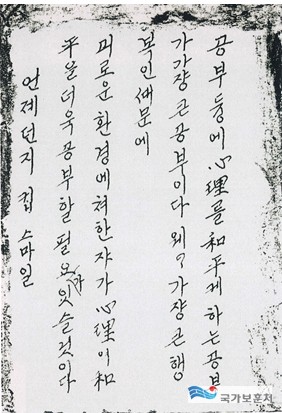 공부 등에 心理를 和平케 하는 공부
가 가쟝 큰 공부이다 왜? 가쟝 큰 행
복인 때문에
괴로운 환경에 쳐한 자가 心理의 和
平운더욱 공부할 필요가 잇슬것이다
언제던지 컵 스마일
국가보훈처